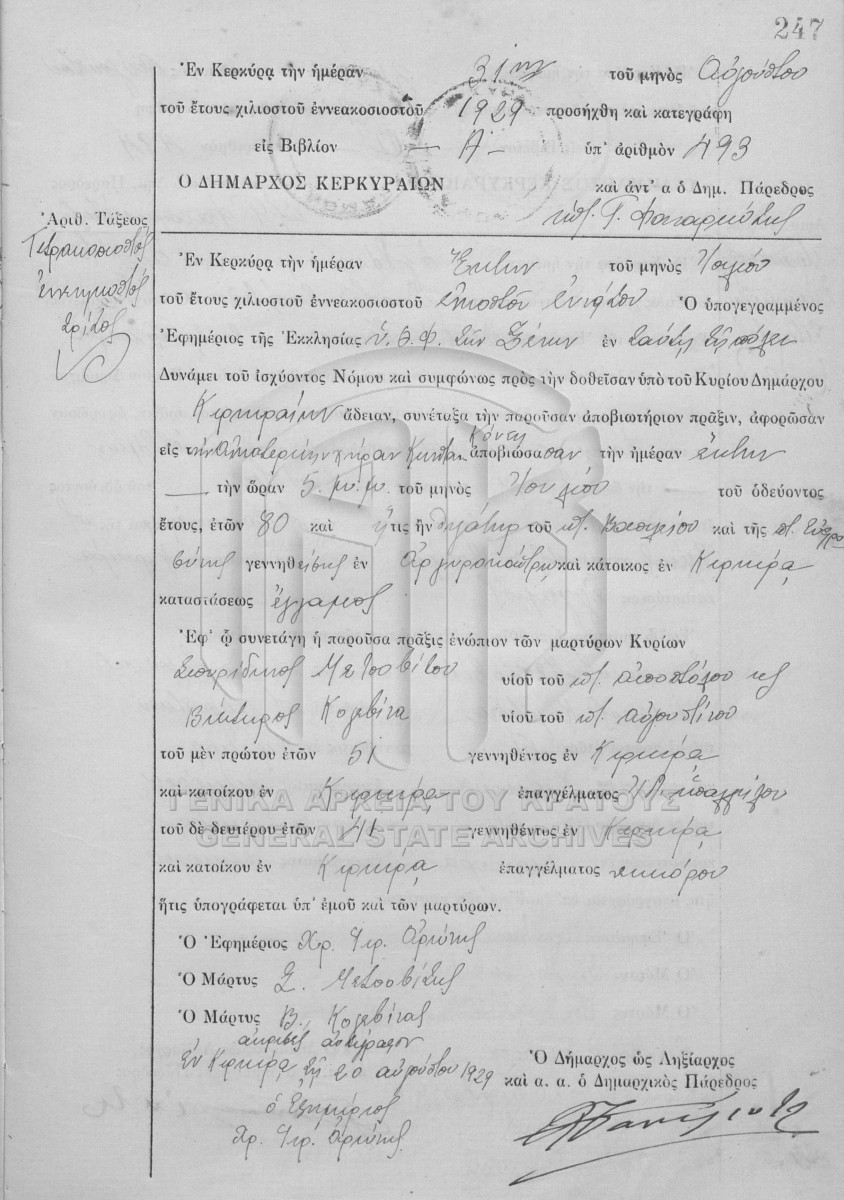 247
Ἐν Κερκύρᾳ τὴν ἡμέραν 31ην τοῦ μηνὸς Αὐγούστου
τοῦ ἔτους χιλιοστοῦ ἐννεακοσιοστοῦ 1929 προσήχθη καὶ κατεγράφη
εἰς Βιβλίον — Α — ὑπ' ἀριθμὸν 493
Ο ΔΗΜΑΡΧΟΣ ΚΕΡΚΥΡΑΙΩΝ καὶ ἀντ' α ὁ Δημ. Πάρεδρος
Ἀριθ. Τάξεως
Τετρακοσιοστὸς
ἐνενηκοστὸς
τρίτος
Ἐν Κερκύρᾳ τὴν ἡμέραν Ἕκτην τοῦ μηνὸς Ἰουλίου
τοῦ ἔτους χιλιοστοῦ ἐννεακοσιοστοῦ εἰκοστοῦ ἐνάτου Ὁ ὑπογεγραμμένος
Ἐφημέριος τῆς Ἐκκλησίας Υ. Θ. Φ. τῶν Ξένων ἐν ταύτῃ τῇ πόλει
Δυνάμει τοῦ ἰσχύοντος Νόμου καὶ συμφώνως πρὸς τὴν δοθεῖσαν ὑπὸ τοῦ Κυρίου Δημάρχου
Κερκυραίων ἄδειαν, συνέταξα τὴν παροῦσαν ἀποβιωτήριον πρᾶξιν, ἀφορῶσαν
εἰς τὴν Αἰκατερίνην χήραν Κόντη ἀποβιώσασαν τὴν ἡμέραν ἕκτην
— τὴν ὥραν 5 μ.μ. τοῦ μηνὸς Ἰουλίου τοῦ ὁδεύοντος
ἔτους, ἐτῶν 80 καὶ ἥτις ἦν θυγάτηρ τοῦ ποτ. Βασιλείου καὶ τῆς ποτ. Εὐφρο
σύνης γεννηθείσης ἐν Ἀργυροκάστρῳ καὶ κάτοικος ἐν Κερκύρᾳ
καταστάσεως ἔγγαμος
Ἐφ' ᾧ συνετάγη ἡ παροῦσα πρᾶξις ἐνώπιον τῶν μαρτύρων Κυρίων
Σπυρίδωνος Μετσοβίτου υἱοῦ τοῦ ποτ. Ἀποστόλου κς
Βίκτωρος Κολεβίνα υἱοῦ τοῦ ποτ. Αὐγουστίνου
τοῦ μὲν πρώτου ἐτῶν 51 γεννηθέντος ἐν Κερκύρᾳ
καὶ κατοίκου ἐν Κερκύρᾳ ἐπαγγέλματος ὑπαλλήλου
τοῦ δὲ δευτέρου ἐτῶν 41 γεννηθέντος ἐν Κερκύρᾳ
καὶ κατοίκου ἐν Κερκύρᾳ ἐπαγγέλματος νεωκόρου
ἥτις ὑπογράφεται ὑπ' ἐμοῦ καὶ τῶν μαρτύρων.
Ὁ Ἐφημέριος Χρ. Ἱερ. Ἀριώτης
Ὁ Μάρτυς Σ. Μετσοβίτης
Ὁ Μάρτυς Β. Κολεβίνας
ἀκριβὲς ἀντίγραφον
Ἐν Κερκύρᾳ τῇ 20 αὐγούστου 1929
ὁ Ἐφημέριος
Χρ. Ἱερ. Ἀριώτης
Ὁ Δήμαρχος ὡς Ληξίαρχος
καὶ α. α. ὁ Δημαρχικὸς Πάρεδρος
ΓΕΝΙΚΑ ΑΡΧΕΙΑ ΤΟΥ ΚΡΑΤΟΥΣ
GENERAL STATE ARCHIVES